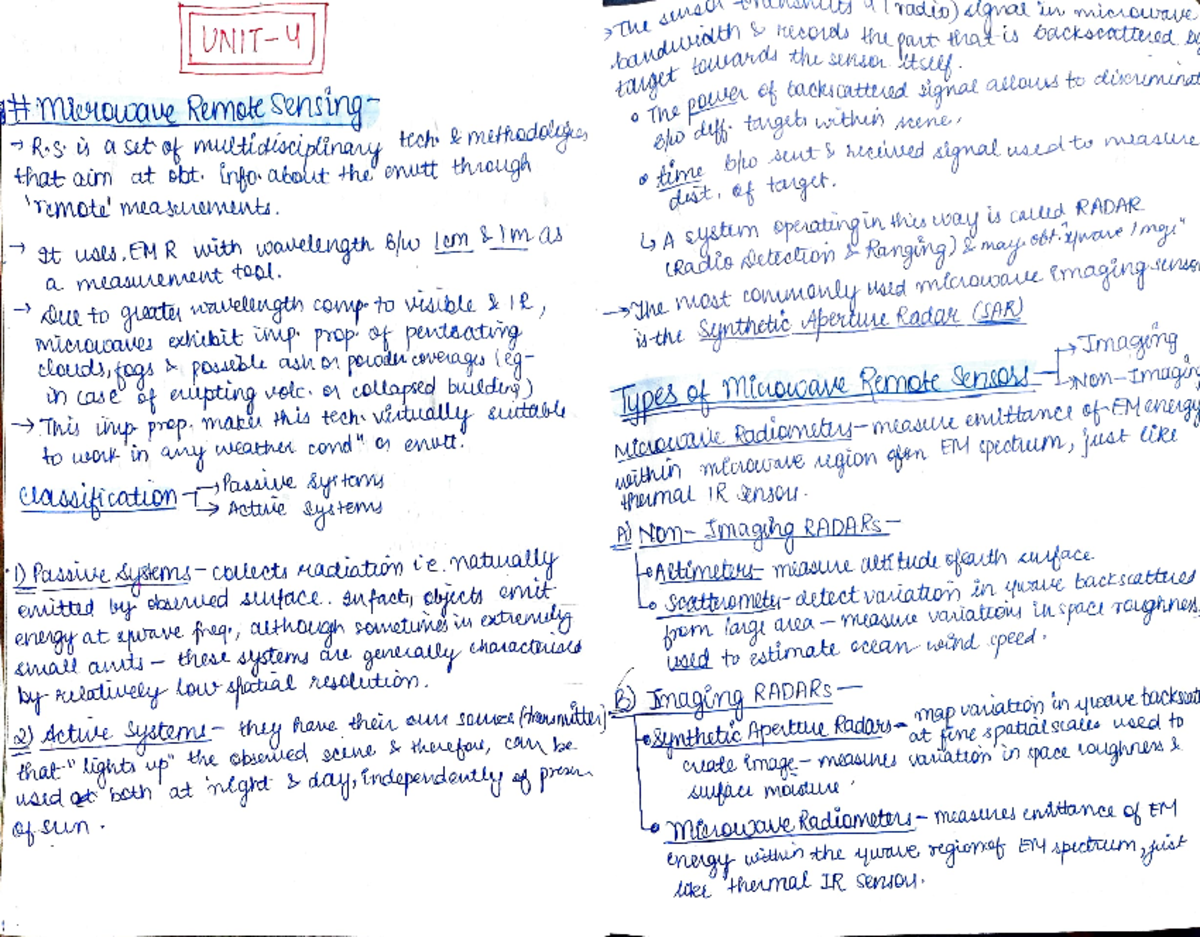 UNIT-4
# Microwave Remote Sensing-
→ R.S. is a set of multidisciplinary tech. & methodologies
that aim at obt. info. about the envtt through
'remote' measurements.
→ It uses EMR with wavelength b/w 1cm & 1m as
a measurement tool.
→ Due to greater wavelength comp. to visible & IR,
microwaves exhibit imp. prop. of pentrating
clouds, fogs & possible ash or powder coverages (eg-
in case of erupting volc. or collapsed building)
→ This imp prop. makes this tech. virtually suitable
to work in any weather condⁿ or envtt.
Classification → Passive Systems
→ Active Systems
1) Passive Systems - collects radiation i.e. naturally
emitted by observed surface. Infact, objects emit
energy at μwave freq., although sometimes in extremely
small amts - these systems are generally characterised
by relatively low spatial resolution.
2) Active Systems - they have their own source (transmitter)
that "lights up" the observed scene & therefore, can be
used at both at night & day, independently of presen
of sun.
→ The sensor transmits a (radio) signal in microwave
bandwidth & records the part that is backscattered by
target towards the sensor itself.
• The power of backscattered signal allows to discriminat
b/w diff. targets within scene.
• time b/w sent & received signal used to measure
dist. of target.
↳ A system operating in this way is called RADAR
(Radio Detection & Ranging) & may obt. "μwave imgs"
→ The most commonly used microwave imaging sensor
is the Synthetic Aperture Radar (SAR)
Types of Microwave Remote Sensors → Imaging
→ Non-Imaging
Microwave Radiometers - measure emittance of EM energy
within microwave region of EM spectrum, just like
thermal IR sensors.
A) Non-Imaging RADARs-
• Altimeters - measure altitude of earth surface.
• Scatterometer - detect variation in μwave backscattered
from large area - measure variations in space roughness
used to estimate ocean wind speed.
B) Imaging RADARs-
• Synthetic Aperture Radars - map variation in μwave backscatt
at fine spatial scales used to
create image - measures variation in space roughness &
surface moisture.
• Microwave Radiometers - measures emittance of EM
energy within the μwave region of EM spectrum, just
like thermal IR sensors.